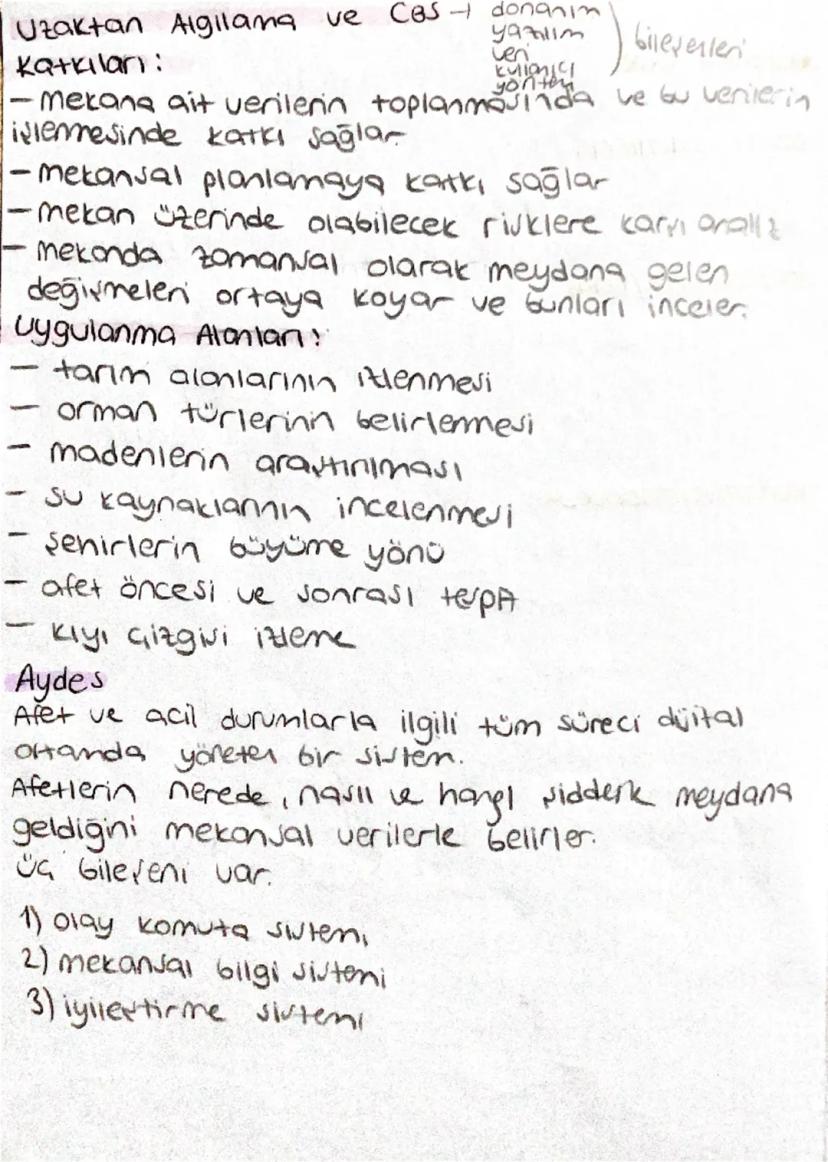 Uzaktan Algılama ve CBS → donanım
yazılım
veri
kullanıcı
yöntem
bileşenleri
Katkıları:
- Mekana ait verilerin toplanmasında ve bu verilerin
işlenmesinde katkı sağlar
- Mekansal planlamaya katkı sağlar
- Mekan üzerinde olabilecek risklere karşı analiz
- Mekanda zamansal olarak meydana gelen
değişmeleri ortaya koyar ve bunları inceler.
Uygulanma Alanları:
- tarım alanlarının izlenmesi
- orman türlerinin belirlenmesi
- madenlerin araştırılması
- su kaynaklarının incelenmesi
- şehirlerin büyüme yönü
- afet öncesi ve sonrası tespit
- kıyı çizgisi izleme
Aydes
Afet ve acil durumlarla ilgili tüm süreci dijital
ortamda yöneten bir sistem.
Afetlerin nerede, nasıl ve hangi şiddette meydana
geldiğini mekansal verilerle belirler.
Üç bileşeni var.
1) olay komuta sistemi
2) mekansal bilgi sistemi
3) iyileştirme sistemi